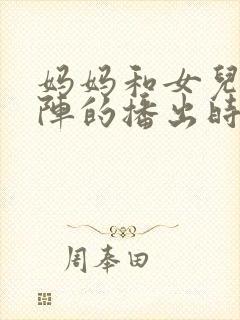 妈妈和女兒
陣的播出時
周奉田